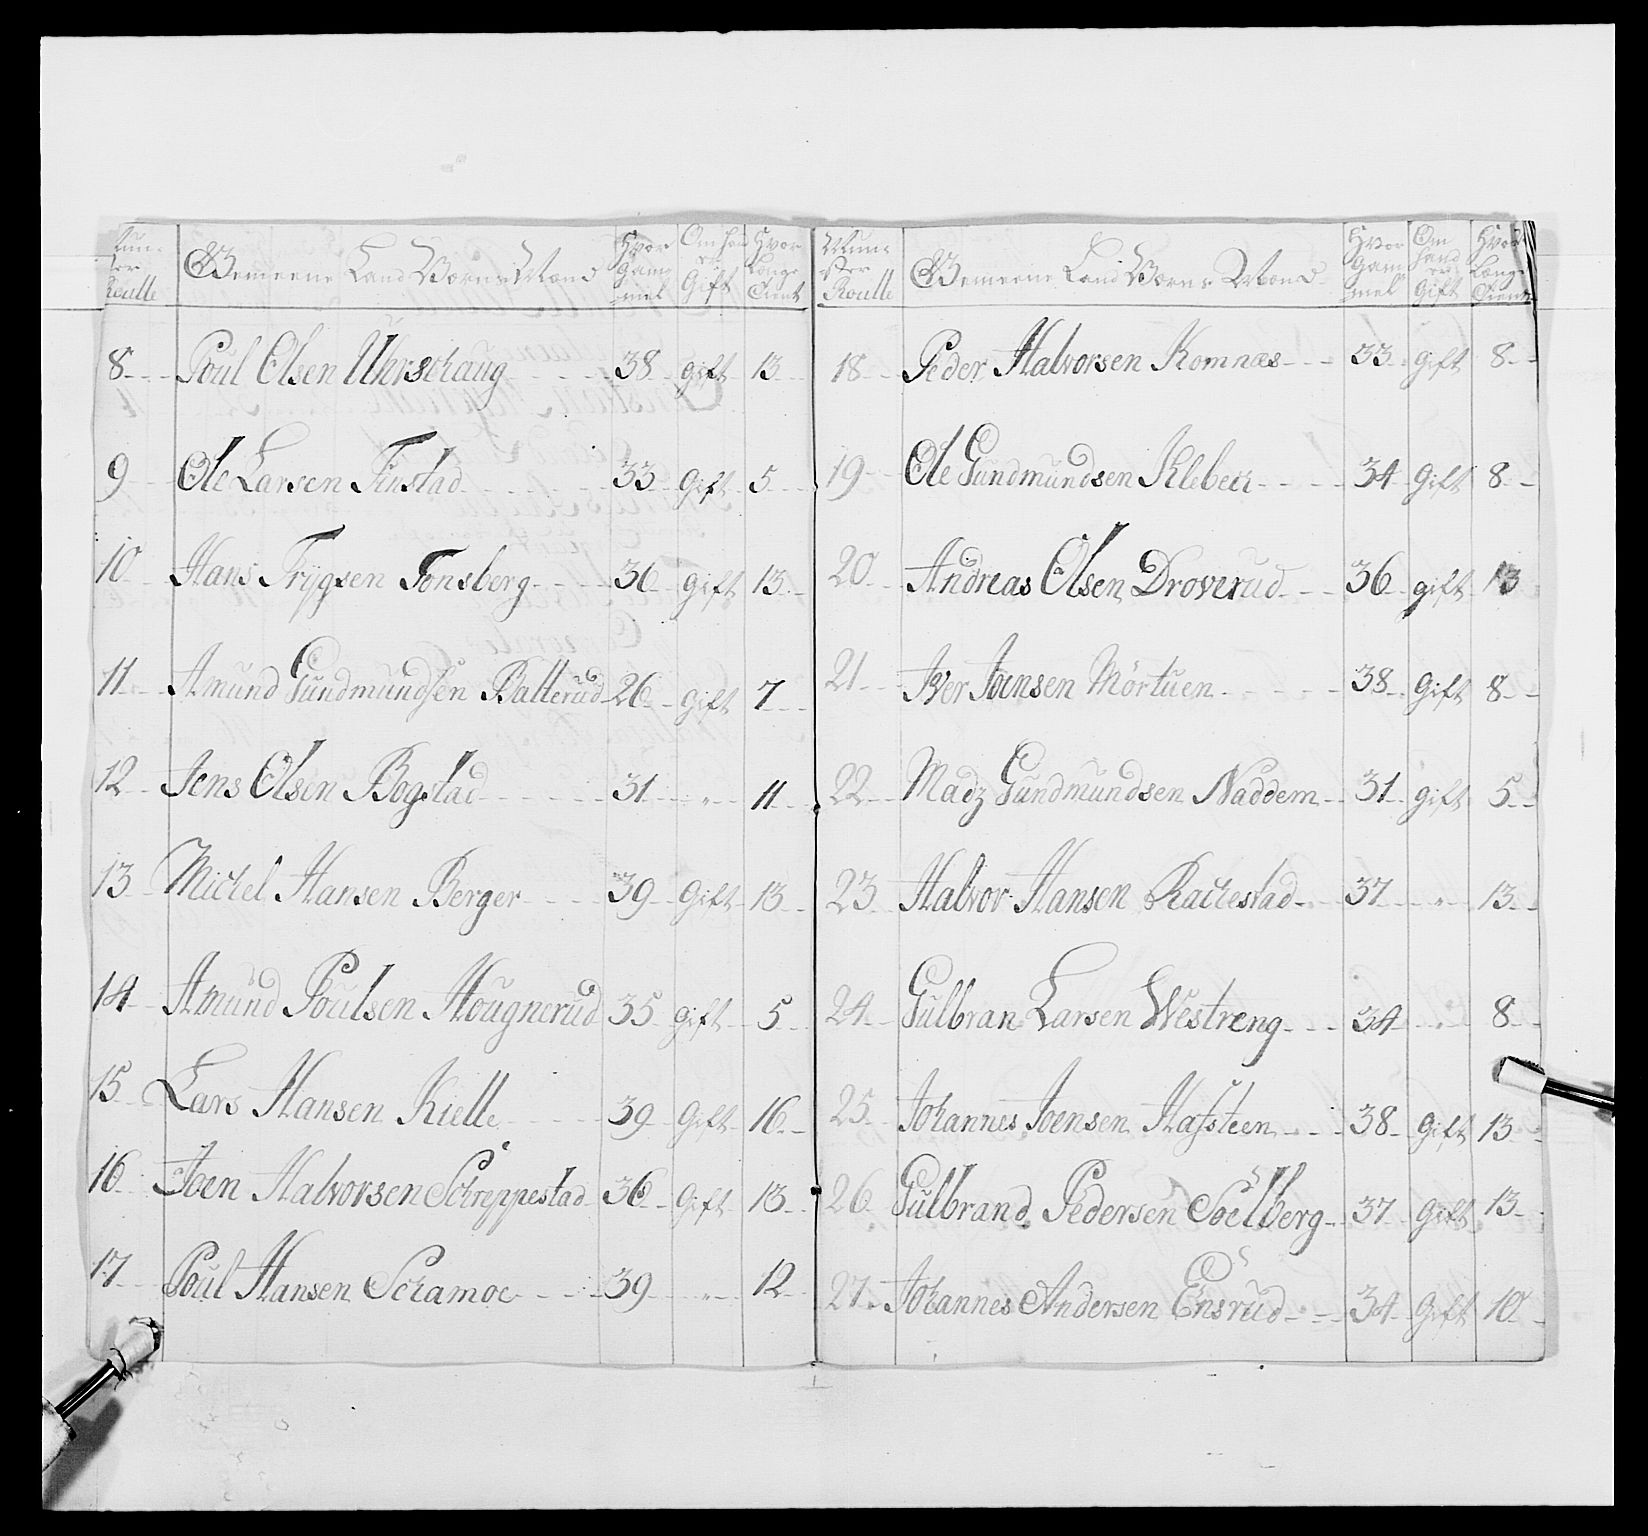 Num-
mer
Roulle
Gemeene Land Værns Mænd
Hvor
Gam-
mel
Om han
er
Gift
Hvor
Længe
Tient
8 Poul Olsen Uhrschaug 38 gift 13
9 Ole Larsen Finstad 33 Gift 5
10 Hans Trygsen Tonsberg 36 gift 13
11 Amund Gundmundsen Balterud 26 Gift 7
12 Jens Olsen Bogstad 31 " 11
13 Michel Hansen Berger 39 Gift 13
14 Amund Poulsen Hougnerud 35 gift 5
15 Lars Hansen Kielle 39 Gift 16
16 Joen Halvorsen Schreppestad 36 Gift 13
17 Poul Hansen Schamoe 39 " 12
Num-
mer
Roulle
Gemeene Land Værns Mænd
Hvor
Gam-
mel
Om
hand
er
Gift
Hvor
Længe
Tient
18 Peder Halvorsen Komnæs 33 gift 8
19 Ole Gundmundsen Kleben 34 Gift 8
20 Andreas Olsen Droverud 36 gift 13
21 Iver Joensen Mörtuen 38 Gift 8
22 Madz Gundmundsen Naddem 31 gift 5
23 Halvor Hansen Rachestad 37 " 13
24 Gulbran Larsen Westreng 34 " 8
25 Johannes Joensen Hafsteen 38 Gift 13
26 Gulbrand Pedersen Soelberg 37 Gift 13
27 Johannes Andersen Ensrud 34 Gift 10